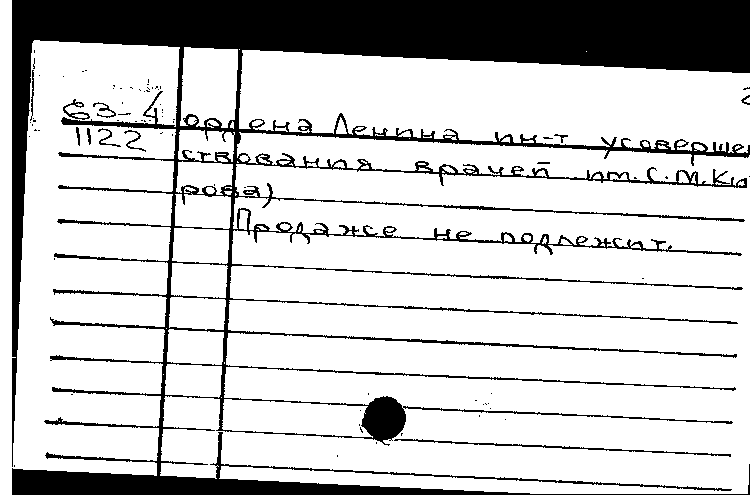 2
63-4 ордена Ленина ин-т усовершен
1122 ствования врачей им. С.М.Ки
рова)
Продаже не подлежит.